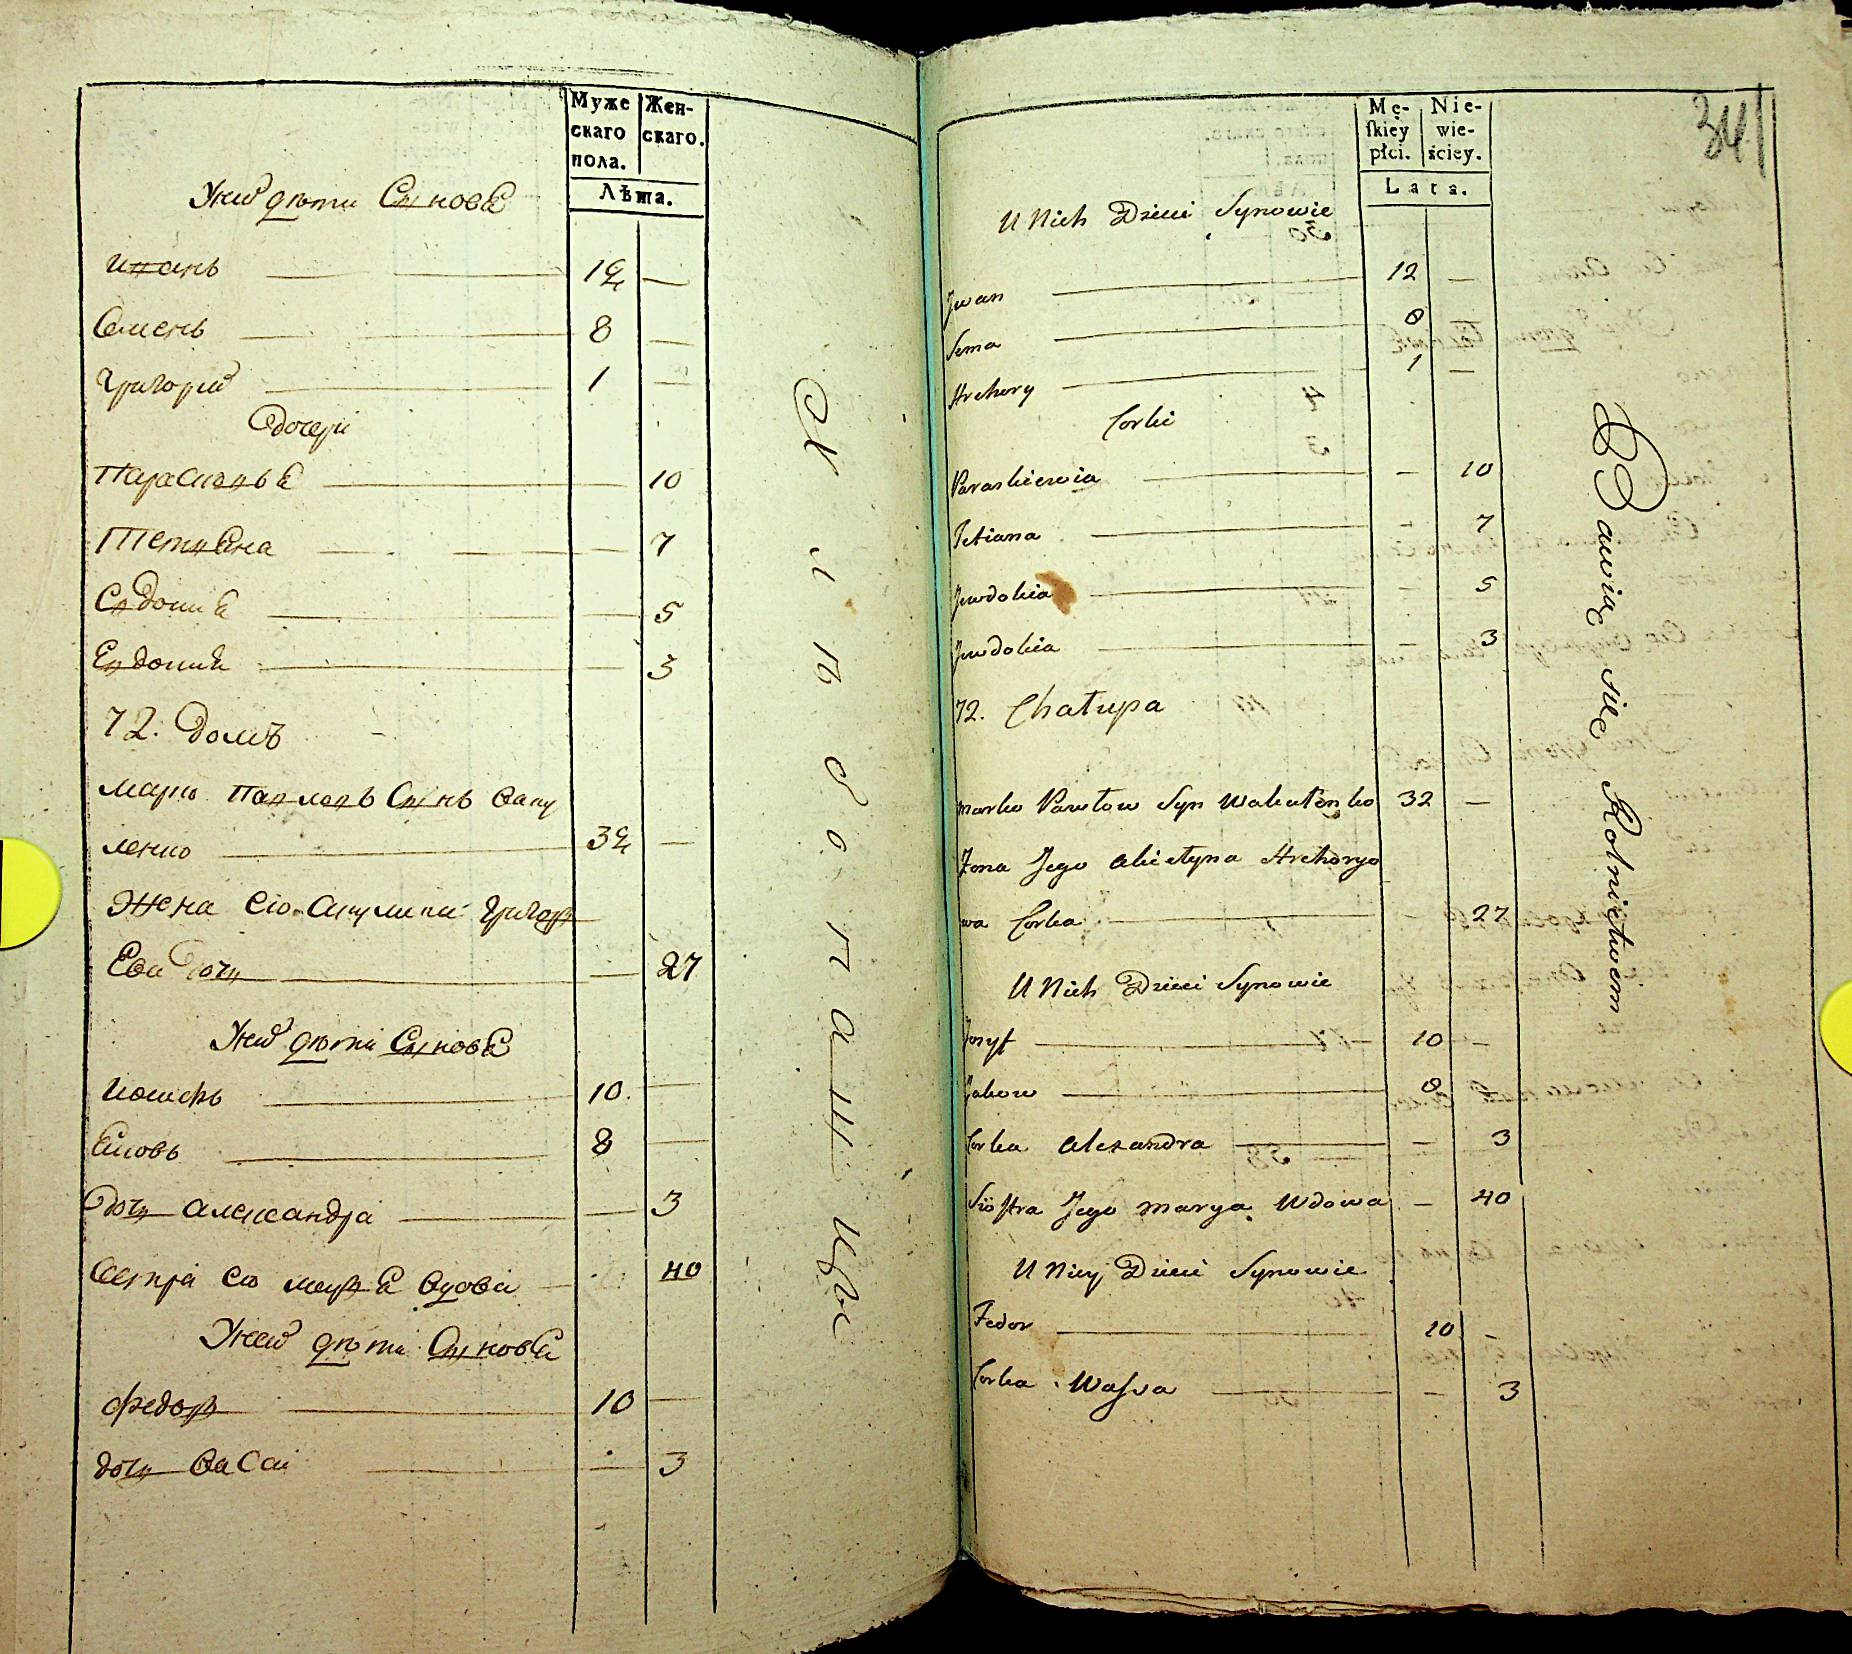 Муже
скаго
пола.
Жен-
скаго.
Лѣта.
У ней дѣти Сыновя
Иванъ 12 —
Семенъ 8 —
Григорій 1 —
дочери
Парасковья 10
Тетияна — 7
Евдокия — 5
Евдокия — 3
72. домъ
Марко Павловъ Сынъ Ваку
ленко 32 —
Жена его Акулина Григор
Ева дочь — 27
У ней дѣти Сыновя
Иосифъ 10. —
Яковъ 8 —
дочь Александра — 3
Сестра его Маря вдова 40
У ней дѣти Сыновя
Федоръ 10 —
дочь Васа — 3
Хлѣбопашцы
34
Mę-
skiey
płci.
Nie-
wie-
ściey.
Lata.
U Nich Dzieci Synowie
Jwan 12 —
Sema 8
Hrehory 1 —
Corki
Paraskiewia — 10
Tetiana — 7
Jewdokia — 5
Jewdokia — 3
72. Chałupa
Marko Pawłow Syn Wakulenko 32 —
Żona Jego Akielyna Hrehoryo
wa Corka — 27
U Nich Dzieci Synowie
Jozyf 10 —
Jakow 8
Corka Alexandra — 3
Siostra Jego Marya Wdowa — 40
U Niey Dzieci Synowie
Fedor 10 —
Corka Wassa — 3
Bawią się Rolnictwem